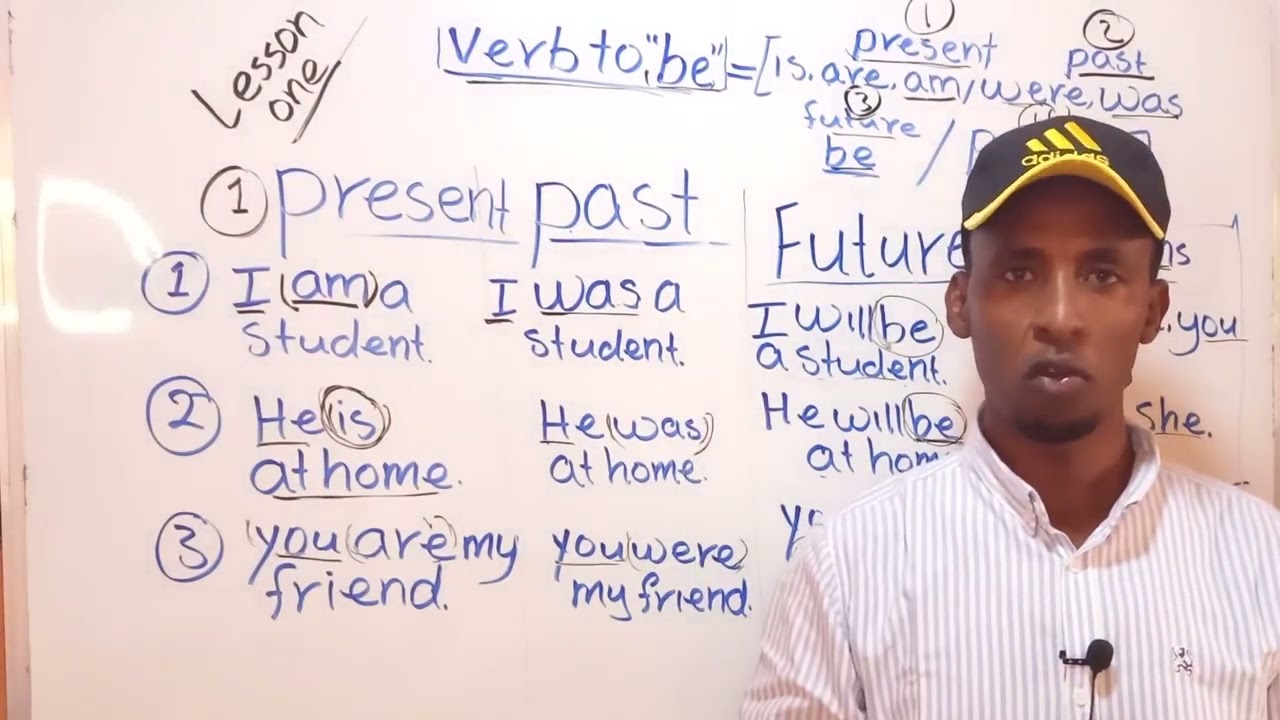 Lesson
one/
verb to "be" = [is, are, am/were, was
① present
② past
③ future
be /
① present past Future
① I (am) a student.
I was a student.
I will be a student.
you
② He (is) at home.
He (was) at home.
He will (be) at hom
she.
③ you (are) my friend.
you (were) my friend.
adidas